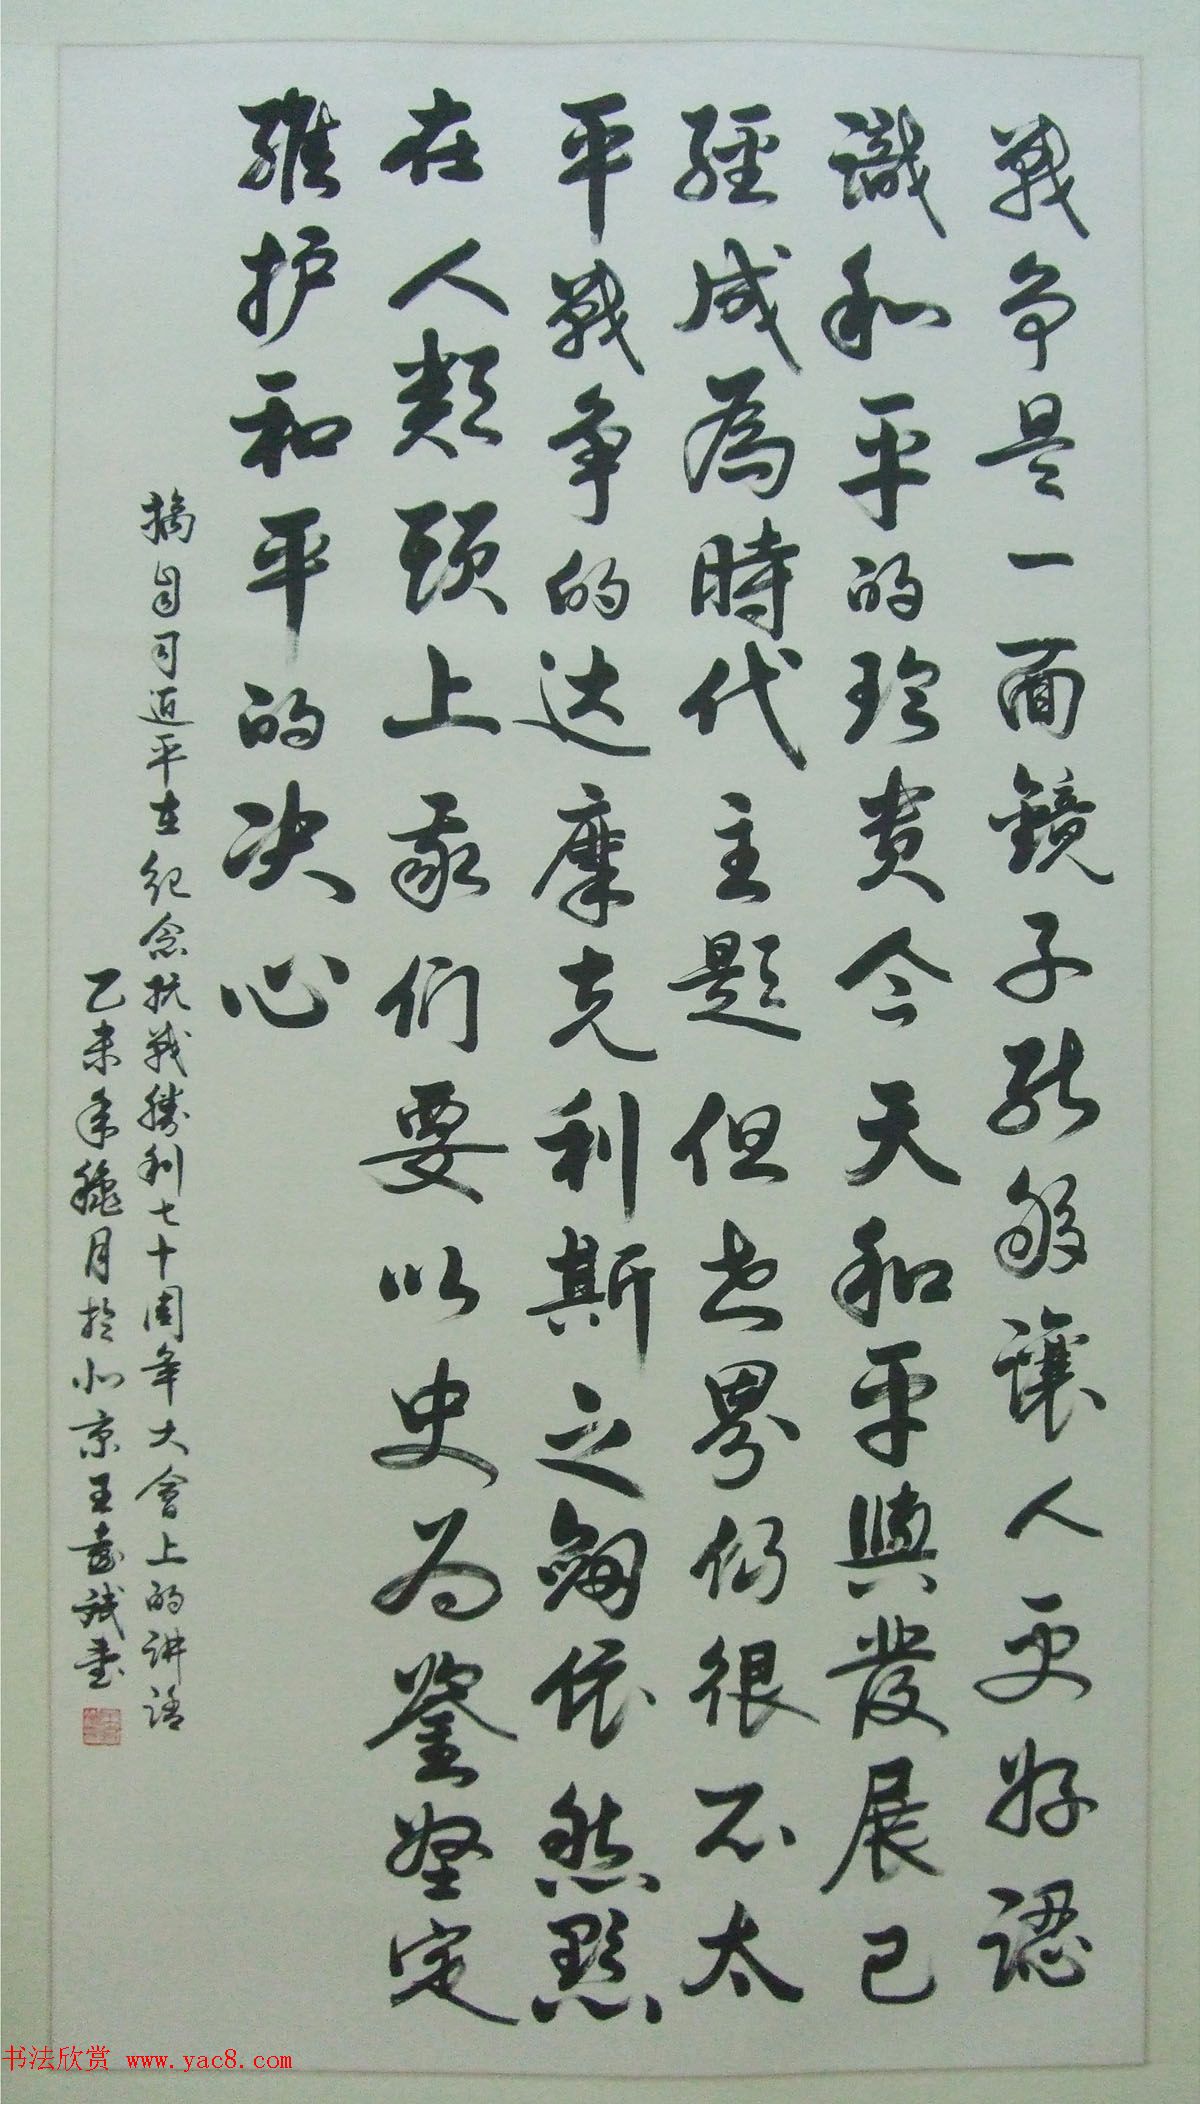 戰争是一面鏡子能够讓人更好認
識和平的珍贵今天和平與發展已
經成為時代主題但世界仍很不太
平戰争的达摩克利斯之劍依然懸
在人類頭上我们要以史为鉴堅定
維护和平的决心
摘自习近平在纪念抗戰勝利七十周年大會上的讲话
乙未年穐月於北京王書
书法欣赏 www.yac8.com